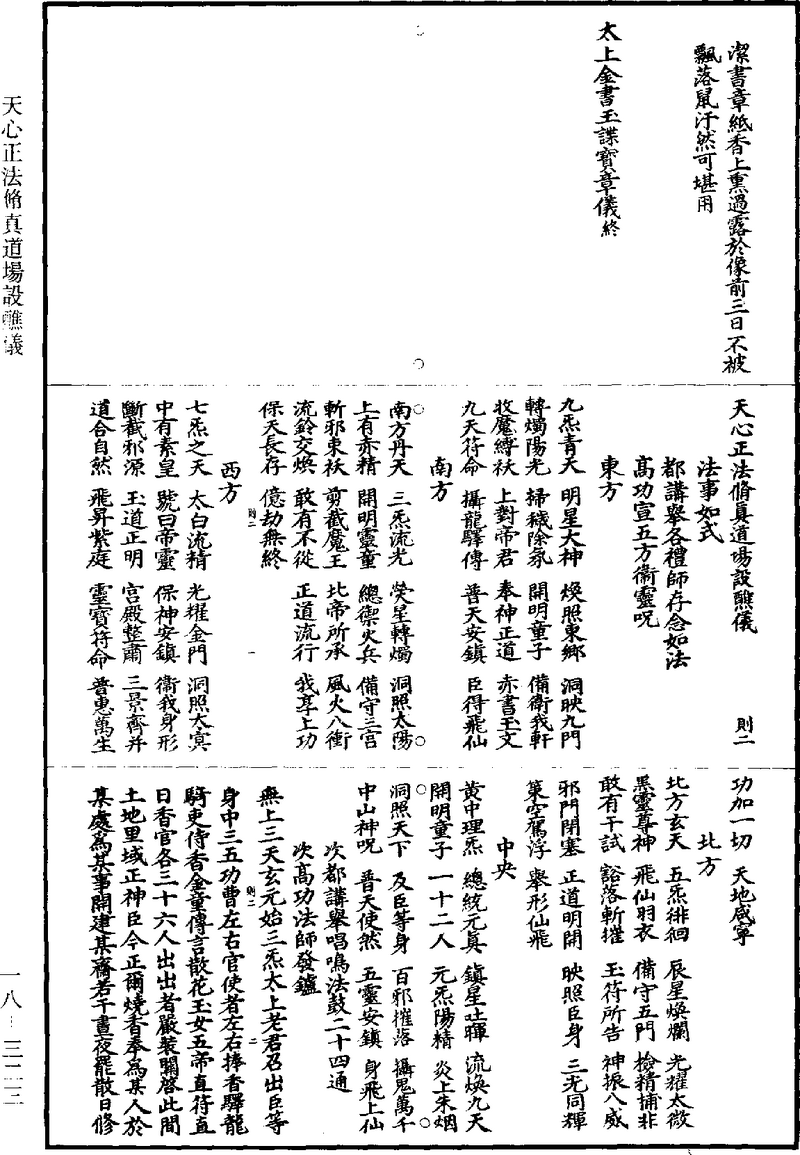 潔書章紙香上熏過露於像前三日不被
飄落鼠汙然可堪用
太上金書玉諜寶章儀終
天心正法脩真道場設醮儀 則二
法事如式
都講舉各禮師存念如法
高功宣五方衞靈呪
東方
九炁青天 明星大神 煥照東鄉 洞映九門
轉燭陽光 掃穢除氛 開明童子 備衛我軒
收魔縛祅 上對帝君 奉神正道 赤書玉文
九天符命 攝龍驛傳 普天安鎮 臣得飛仙
南方
南方丹天 三炁流光 熒星轉燭 洞照太陽
上有赤精 開明靈童 總禦火兵 備守三宮
斬邪束祅 剪截魔王 北帝所承 風火八衝
流鈴交煥 敢有不從 正道流行 我享上功
保天長存 億劫無終
西方
七炁之天 太白流精 光耀金門 洞照太㝠
中有素皇 號曰帝靈 保神安鎮 衞我身形
斷截邪源 玉道正明 宮殿整肅 三景齊并
道合自然 飛昇紫庭 靈寶符命 普惠萬生
功加一切 天地咸寧
北方
北方玄天 五炁徘徊 辰星煥爛 光耀太微
黑靈尊神 飛仙羽衣 備守五門 檢精捕非
敢有干試 豁落斬摧 玉符所告 神振八威
邪門閉塞 正道明開 映照臣身 三光同輝
策空駕浮 舉形仙飛
中央
黃中理炁 總統元真 鎮星吐暉 流煥九天
開明童子 一十二人 元炁陽精 炎上朱烟
洞照天下 及臣等身 百邪摧落 攝鬼萬千
中山神呪 普天使然 五靈安鎮 身飛上仙
次都講舉唱鳴法鼓二十四通
次高功法師發鑪
無上三天玄元始三炁太上老君召出臣等
身中三五功曹左右官使者左右捧香驛龍
騎吏侍香金童傳言散花玉女五帝直符直
日香官各三十六人出出者嚴裝關啓此間
土地里域正神臣今正爾燒香奉為某人於
某處為某事開建某齋若干晝夜罷散日修
天心正法脩真道場設醮儀
一八—三二三